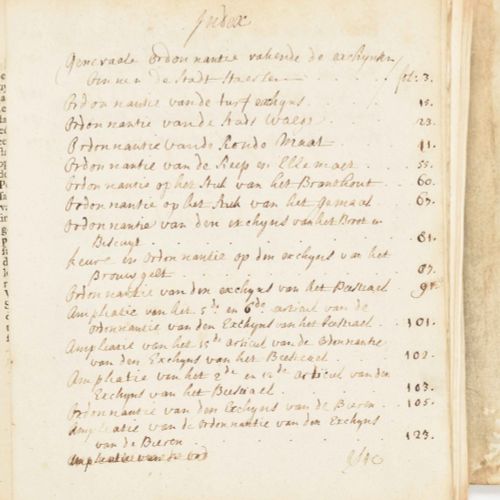 Index
Generaale ordonnantie rakende de exchynsen
binnen de Stadt fol: 3.
Ordonnantie van de turf exchyns 15.
Ordonnantie van de Stads Waege 23.
Ordonnantie van de Ronde Maat 41.
Ordonnantie van de Reep en Elle maet 55.
Ordonnantie op het Stuk van het Branthout 60.
Ordonnantie op het Stuk van het Gemaal 67.
Ordonnantie van den exchyns van het Broot en
Biscuyt 81.
keure en Ordonnantie op den exchyns van het
Brouw gelt 87.
Ordonnantie van den exchyns van het Bestiael 91
Ampliatie van het 5de en 6de articul van de
Ordonnantie van den Exchyns van het Bestiael 101.
Ampliatie van het 15de articul van de Ordonnantie
van den Exchyns van het Bestiael 102.
Ampliatie van het 2de en 12de articul van den
Exchyns van het Bestiael 103.
Ordonnantie van den Exchyns van de Bieren 105.
Ampliatie van de Ordonnantie van den Exchyns
van de Bieren 123.
Ampliatie van de